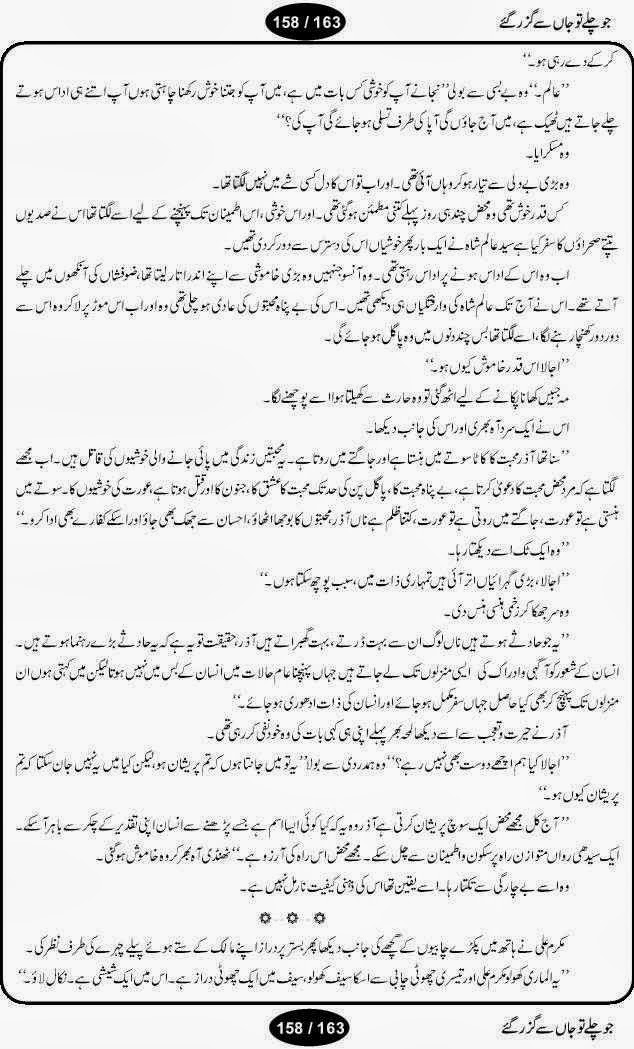 جو چلے تو جاں سے گزر گئے
158 / 163
کر کے دے رہی ہو۔‘‘
’’عالم۔‘‘ وہ بے بسی سے بولی ’’نجانے آپ کو خوشی کس بات میں ہے، میں آپ کو جتنا خوش رکھنا چاہتی ہوں آپ اتنے ہی اداس ہوتے
چلے جاتے ہیں ٹھیک ہے، میں آج جاؤں گی آپا کی طرف تسلی ہو جائے گی آپ کی؟‘‘
وہ مسکرایا۔
وہ بڑی بے دلی سے تیار ہو کر وہاں آئی تھی۔ اور اب تو اس کا دل کسی شے میں نہیں لگتا تھا۔
کس قدر خوش تھی وہ محض چند ہی روز پہلے کتنی مطمئن ہو گئی تھی۔ اور اس خوشی، اس اطمینان تک پہنچنے کے لیے اسے لگتا تھا اس نے صدیوں
تپتے صحراؤں کا سفر کیا ہے سید عالم شاہ نے ایک بار پھر خوشیاں اس کی دسترس سے دور کر دی تھیں۔
اب وہ اس کے اداس ہونے پر اداس رہتی تھی۔ وہ آنسو جنہیں وہ بڑی خاموشی سے اپنے اندر اتار لیتا تھا، ضوفشاں کی آنکھوں میں چلے
آتے تھے۔ اس نے آج تک عالم شاہ کی وارفتگیاں ہی دیکھی تھیں۔ اس کی بے پناہ محبتوں کی عادی ہو چلی تھی وہ اور اب اس موڑ پر لا کر وہ اس سے
دور دور کھنچا رہنے لگا، اسے لگتا تھا بس چند دنوں میں وہ پاگل ہو جائے گی۔
’’اجالا اس قدر خاموش کیوں ہو۔‘‘
مہ جبیں کھانا پکانے کے لیے اٹھ گئی تو وہ حارث سے کھیلتا ہوا اسے پوچھنے لگا۔
اس نے ایک سرد آہ بھری اور اس کی جانب دیکھا۔
’’سنا تھا آذر محبت کا کاٹا سوتے میں ہنستا ہے اور جاگتے میں روتا ہے۔ یہ محبتیں زندگی میں پائی جانے والی خوشیوں کی قاتل ہیں۔ اب مجھے
لگتا ہے کہ مرد محض محبت کا دعویٰ کرتا ہے، بے پناہ محبت کا، پاگل پن کی حد تک محبت کا عشق کا، جنون کا اور قتل ہوتا ہے، عورت کی خوشیوں کا۔ سوتے میں
ہنستی ہے تو عورت، جاگتے میں روتی ہے تو عورت، کتنا ظلم ہے ناں آذر، محبتوں کا بوجھا اٹھاؤ، احسان سے جھک بھی جاؤ اور اسکے کفارے بھی ادا کرو۔‘‘
’’وہ ایک ٹک اسے دیکھتا رہا۔
’’اجالا، بڑی گہرائیاں اتر آئی ہیں تمہاری ذات میں، سبب پوچھ سکتا ہوں۔‘‘
وہ سر جھکا کر زخمی ہنسی ہنس دی۔
’’یہ جو حادثے ہوتے ہیں ناں لوگ ان سے بہت ڈرتے، بہت گھبراتے ہیں آذر، حقیقت تو یہ ہے کہ یہ حادثے بڑے رہنما ہوتے ہیں۔
انسان کے شعور کو آگہی و ادراک کی ایسی منزلوں تک لے جاتے ہیں جہاں پہنچنا عام حالات میں انسان کے بس میں نہیں ہوتا لیکن میں کہتی ہوں ان
منزلوں تک پہنچ کر بھی کیا حاصل جہاں سفر مکمل ہو جائے اور انسان کی ذات ادھوری ہو جائے۔‘‘
آذر نے حیرت و تعجب سے اسے دیکھا لمحہ بھر پہلے اپنی ہی کہی بات کی وہ خود نفی کر رہی تھی۔
’’اجالا کیا ہم اچھے دوست بھی نہیں رہے؟‘‘ وہ ہمدردی سے بولا ’’یہ تو میں جانتا ہوں کہ تم پریشان ہو، لیکن کیا میں یہ نہیں جان سکتا کہ تم
پریشان کیوں ہو۔‘‘
’’آج کل مجھے محض ایک سوچ پریشان کرتی ہے آذر وہ یہ کہ کیا کوئی ایسا اسم ہے جسے پڑھنے سے انسان اپنی تقدیر کے چکر سے باہر آ سکے۔
ایک سیدھی رواں متوازن راہ پر سکون و اطمینان سے چل سکے۔ مجھے محض اس راہ کی آرزو ہے۔‘‘ ٹھنڈی آہ بھر کر وہ خاموش ہو گئی۔
وہ اسے بے چارگی سے تکتا رہا۔ اسے یقین تھا اس کی ذہنی کیفیت نارمل نہیں ہے۔
مکرم علی نے ہاتھ میں پکڑے چابیوں کے گچھے کی جانب دیکھا پھر بستر پر دراز اپنے مالک کے ستے ہوئے پیلے چہرے کی طرف نظر کی۔
’’یہ الماری کھولو مکرم علی اور تیسری چھوٹی چابی سے اسکا سیف کھولو، سیف میں ایک چھوٹی دراز ہے۔ اس میں ایک شیشی ہے۔ نکال لاؤ۔‘‘
جو چلے تو جاں سے گزر گئے
158 / 163